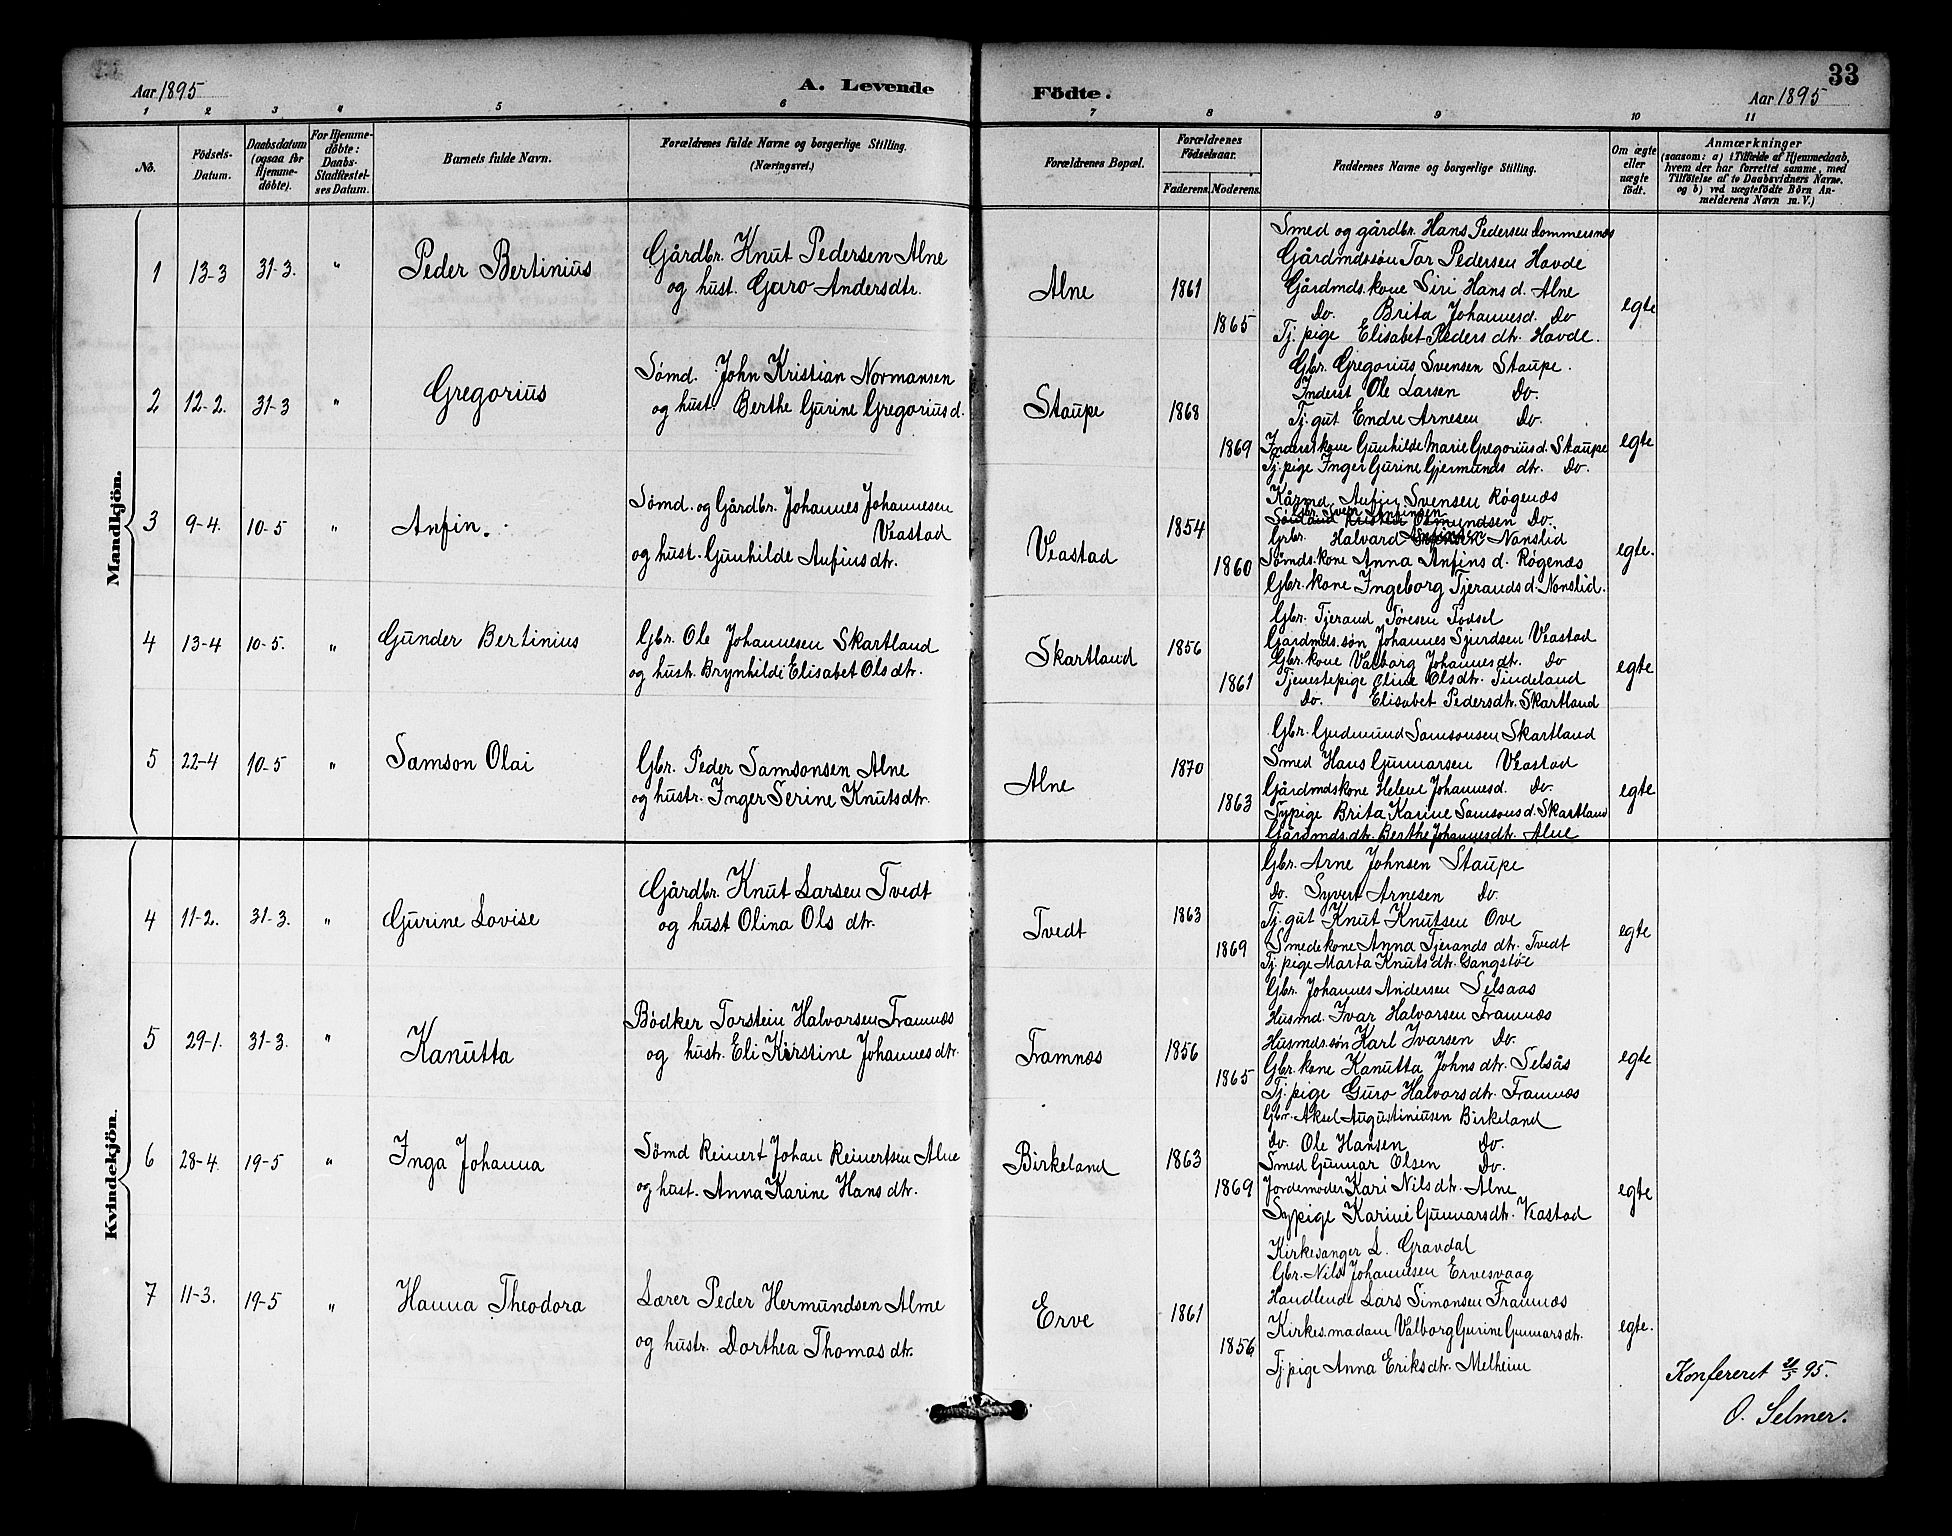 33
Aar 1895
A. Levende Födte.
Aar 1895
1 2 3 4 5 6 7 8 9 10 11
No.
Födsels-Datum.
Daabsdatum (ogsaa for Hjemme-döbte).
For Hjemme-döbte: Daabs-Stadfæstel-ses Datum.
Barnets fulde Navn.
Forældrenes fulde Navne og borgerlige Stilling. (Næringsvei.)
Forældrenes Bopæl.
Forældrenes Födselsaar.
Faderens. Moderens.
Faddernes Navne og borgerlige Stilling.
Om ægte eller uægte födt.
Anmærkninger
(saasom: a) i Tilfælde af Hjemmedaab, hvem der har forrettet samme, med Tilföielse af to Daabsvidners Navne. og b) ved uægtefödte Börn An-melderens Navn m. V.)
Mandkjön.
1 13-3 31-3. " Peder Bertinius
Gårdbr. Knut Pedersen Alne
og hust. Guro Andersdtr.
Alne 1861 1865
Smed og gårdbr. Hans Pedersen Dommersnes
Gårdmdssön Tor Pedersen Havde
Gårdmds.kone Siri Hans d. Alne
Do. Brita Johannesd. Do
Tj. pige Elisabet Peders dtr. Havde.
egte
2 12-2. 31-3 " Gregorius
Sømd. John Kristian Normansen
og hust. Berthe Gurine Gregorius d.
Staupe 1868 1869
Gbr. Gregorius Svensen Staupe.
Inderst Ole Larsen Do.
Tj. gut Endre Arnesen Do.
Inderst kone Gunhilde Marie Gregorius d. Staupe
Tj. pige Inger Gurine Gjermunds dtr. Do.
egte
3 9-4. 10-5 " Anfin.
Sømd. og Gårdbr. Johannes Johannesen
Veastad
og hust. Gunhilde Anfins dtr.
Veastad 1854 1860
Kårmd. Anfin Svensen Røgenæs
Gbr. Sven Anfinsen
Osmundsen Do.
Grbr. Halvard Nonslid
Sømds.kone Anna Anfins d. Røgenæs
Gbr. kone Ingeborg Tjerands d. Nonslid.
egte.
4 13-4 10-5. " Gunder Bertinius
Gbr. Ole Johannesen Skartland
og hustr. Brynhilde Elisabet Ols dtr.
Skartland 1856 1861
Gbr. Tjerand Töresen Födsel
Gårdmds.søn Johannes Sjurdsen Veastad
Gbr. kone Valborg Johannesdt. Do
Tjenestepige Oline Olsdtr. Tindeland
Do. Elisabet Pedersdtr. Skartland
egte
5 22-4 10-5 " Samson Olai
Gbr. Peder Samsonsen Alne
og hustr. Inger Serine Knutsdtr.
Alne 1870 1863
Gbr. Gudmund Samsonsen Skartland
Smed Hans Gunnarsen Veastad
Gårdmdskone Helene Johannesd. Do.
Sypige Brita Karine Samsons d. Skartland
Gårdmds.dtr. Berthe Johannesdtr. Alne
egte
Kvindekjön.
4 11-2. 31-3. " Gurine Lovise
Gårdbr. Knut Larsen Tvedt
og hust Olina Ols dtr.
Tvedt 1863 1869
Gbr. Arne Johnsen Staupe
Do. Syvert Arnesen Do.
Tj. gut Knut Knutsen Ove
Smedekone Anna Tjerands dtr. Tvedt
Tj. pige Marta Knuts dtr. Gangstöe
egte
5 29-1. 31-3. " Kanutta
Bödker Torstein Halvorsen Framnæs
og hustr. Eli Kirstine Johannes dtr.
Framnæs 1856 1865
Gbr. Johannes Andersen Selsaas
Husmd. Ivar Halvorsen Framnæs
Husmds.søn Karl Ivarsen Do.
Gbr. kone Kanutta Johns dtr. Selsås
Tj. pige Guro Halvors dtr. Framnæs
egte
6 28-4. 19-5 " Inga Johanna
Sömd Reinert Johan Reinertsen Alne
og hust. Anna Karine Hans dtr.
Birkeland 1863 1869
Gbr. Aksel Augustiniusen Birkeland
Do. Ole Hansen Do.
Smed Gunnar Olsen Do.
Jordemoder Kari Nils dtr. Alne
Sypige Karine Gunnarsdtr. Veastad
egte
7 11-3. 19-5 " Hanna Theodora
Lærer Peder Hermundsen Alme
og hustr. Dorthea Thomas dtr.
Erve 1861 1856
Kirkesanger L. Gravdal
Gbr. Nils Johannesen Ervesvaag
Handlende Lars Simonsen Framnæs
Kirkes.madam Valborg Gurine Gunnarsdtr.
Tj. pige Anna Eriksdtr. Melheim
egte.
Konfereret 21/5 95.
O. Selmer.